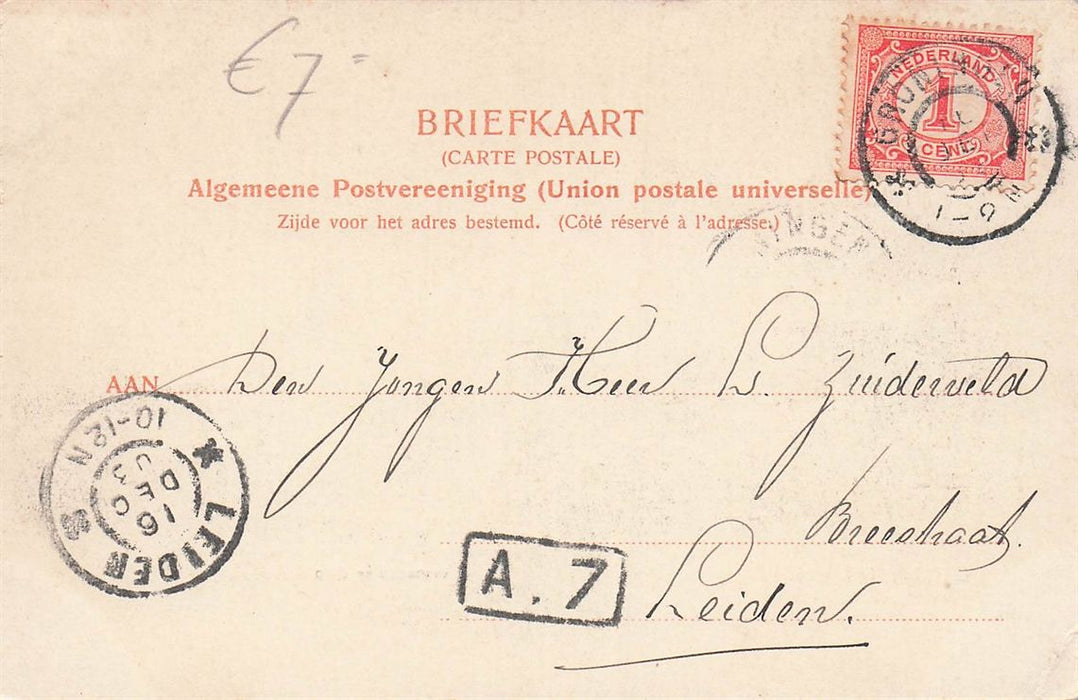 €7=
NEDERLAND
1
CENT
BRIEFKAART
(CARTE POSTALE)
Algemeene Postvereeniging (Union postale universelle)
Zijde voor het adres bestemd. (Côté réservé à l'adresse.)
NINGEN
AAN Den Jongen Heer L. Zuiderveld
Breestraat.
Leiden.
LEIDEN
10-12N
16
DEC
03
A.7